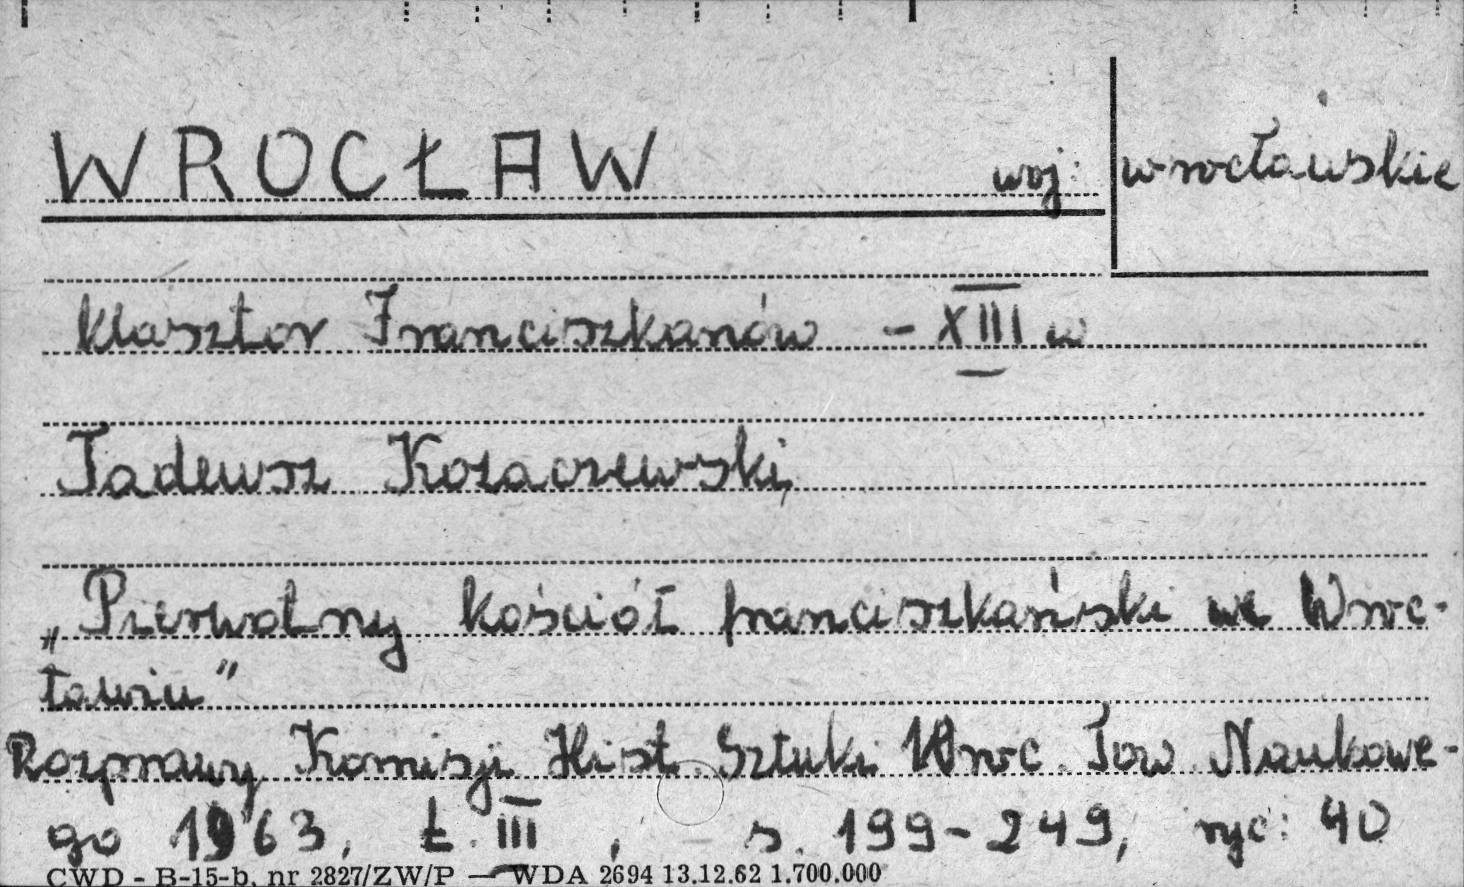 WROCŁAW woj: wrocławskie
Klasztor Franciszkanów – XIII w
Tadeusz Kozaczewski,
„Pierwotny kościół franciszkański we Wroc-
ławiu"
Rozprawy Komisji Hist. Sztuki Wroc. Tow. Naukowe-
go 1963, t. III, s. 199-249, ryc: 40
CWD - B-15-b, nr 2827/ZW/P — WDA 2694 13.12.62 1.700.000